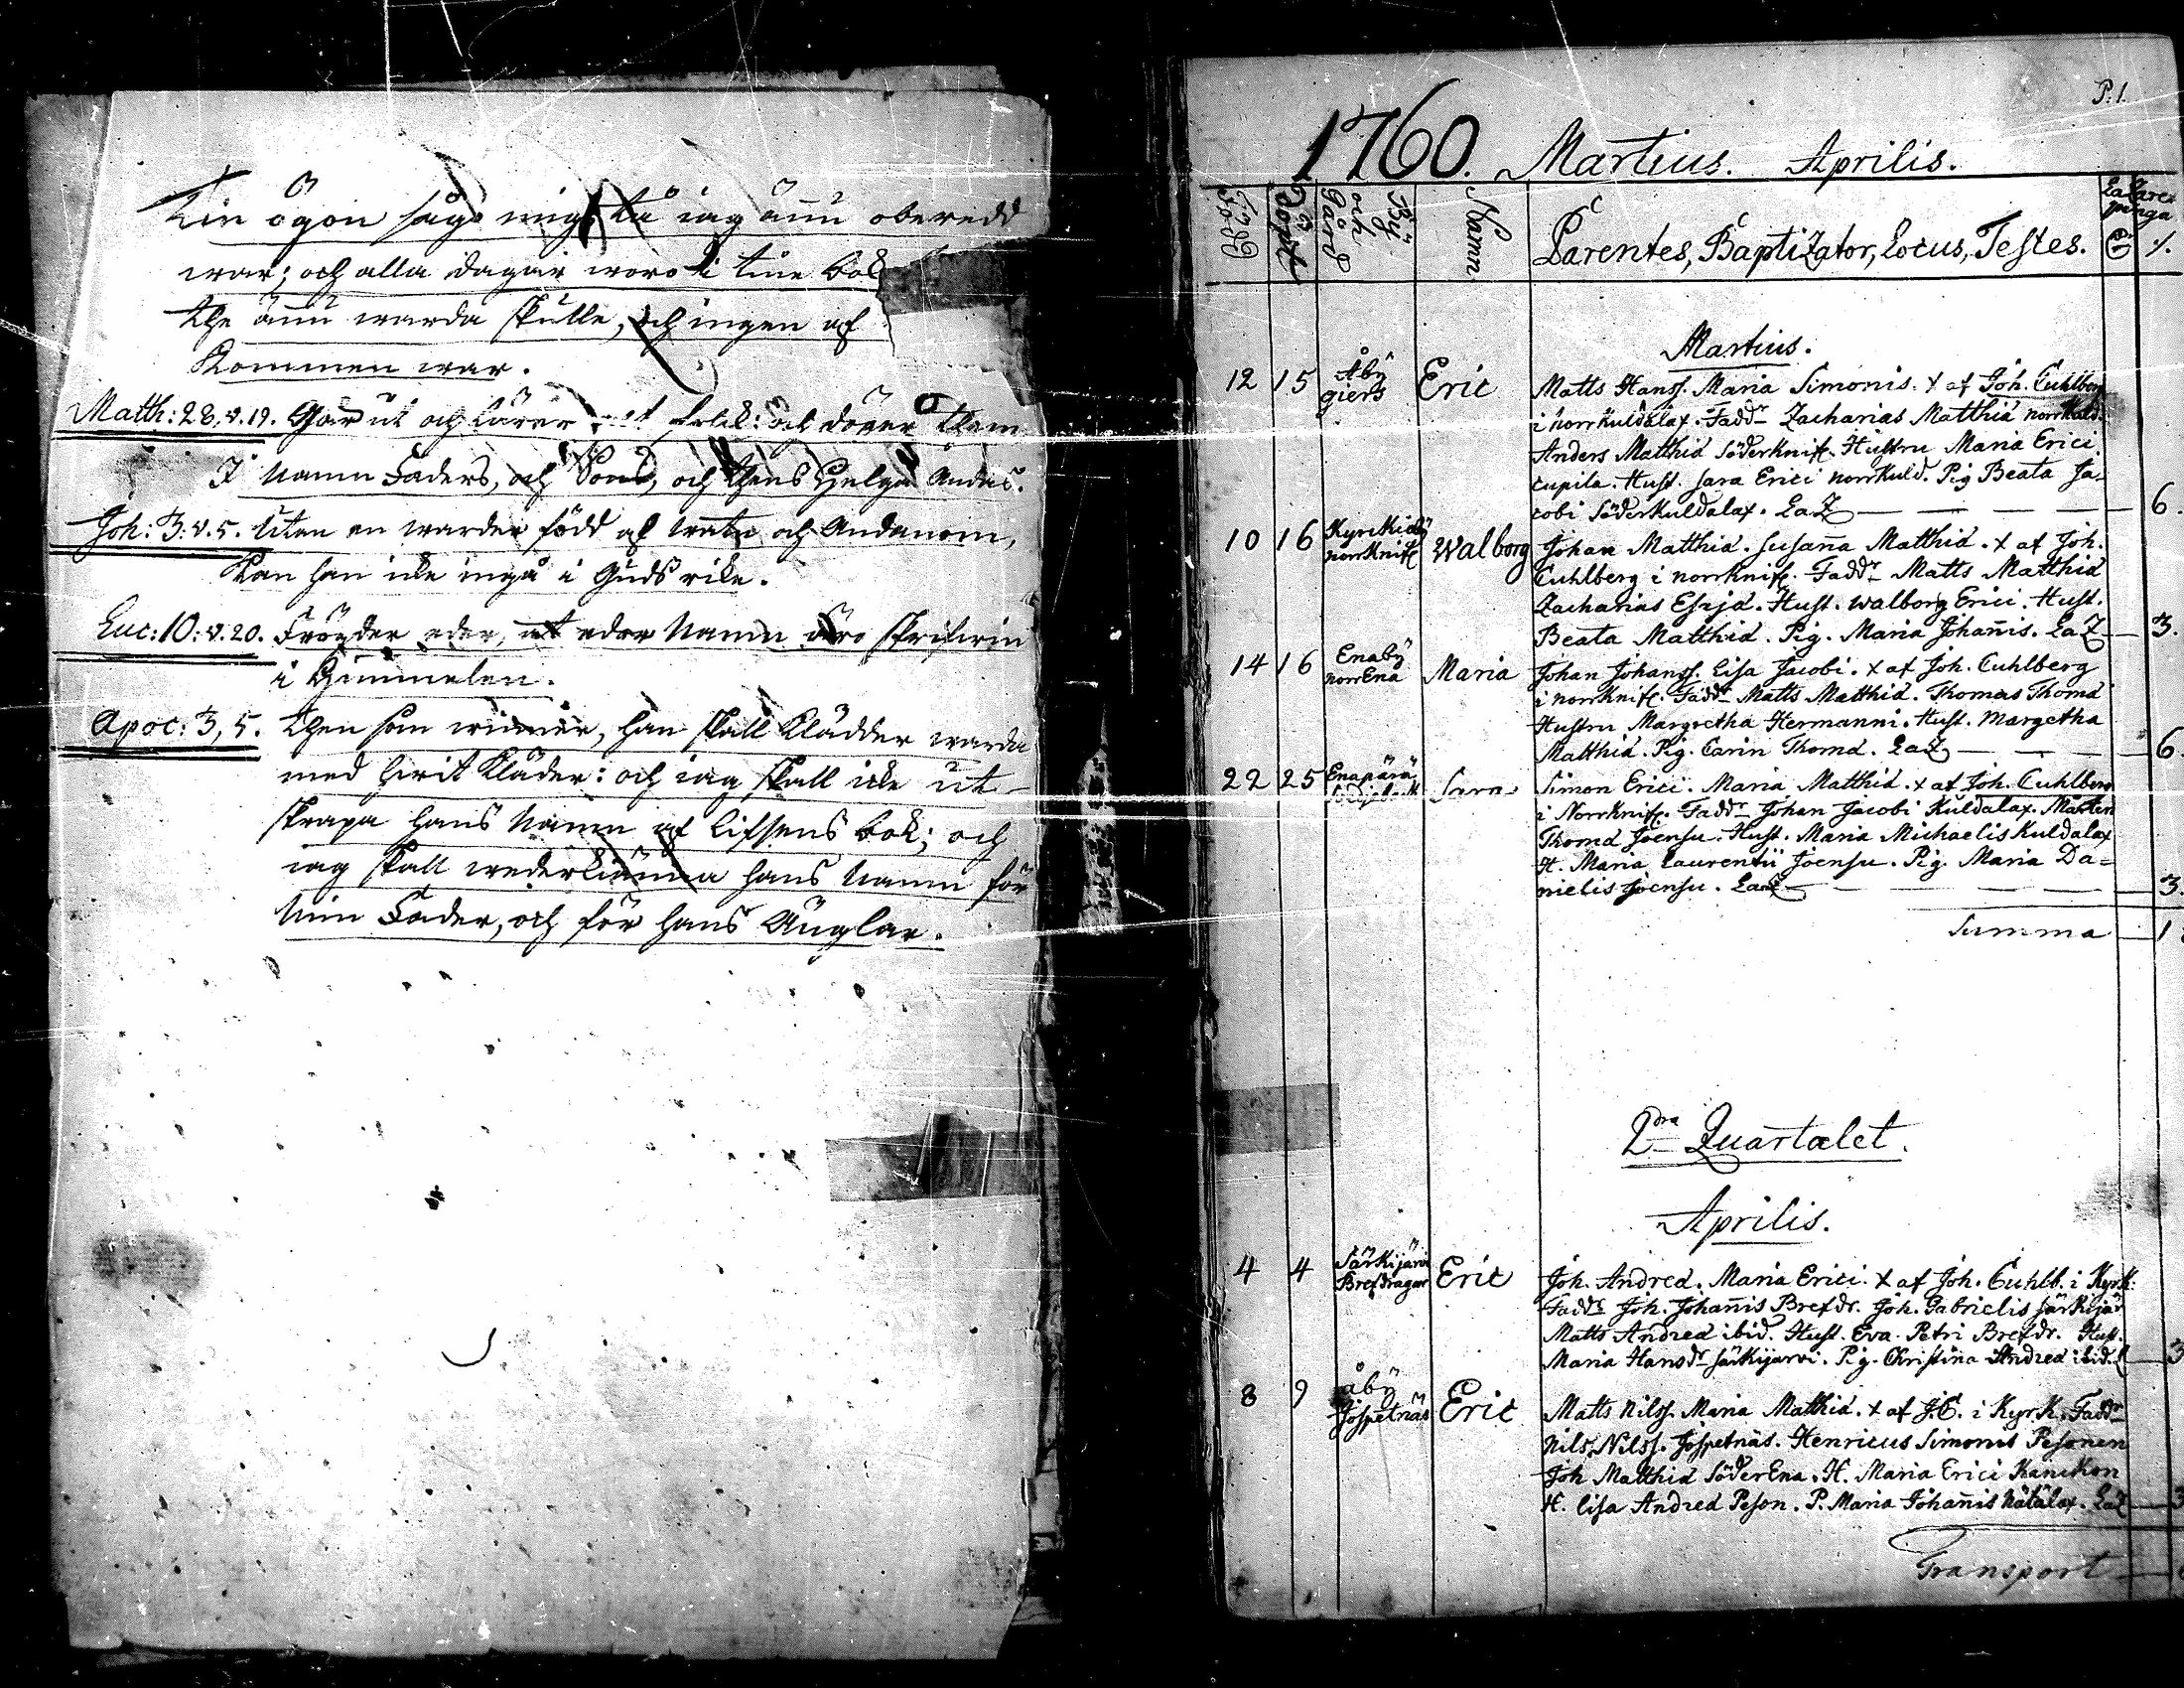 Tin ögon sågo mig, tå iag ännu oberedd
war; och alla dagar woro i tine bok
the ännu warda skulle, och ingen af
kommen war.
Matth: 28, v. 19. Går ut och lärer folck: och döper them
I namn Faders, och Sons, och thens Helga Andas.
Joh: 3: v. 5. Utan en warder född af watn och Andanom,
kan han icke ingå i Guds rike.
Luc: 10: v. 20. Fröyder eder, at edor namn äro skrifwin
i Himmelen.
Apoc: 3, 5. Then som winner, han skall klädder warda
med hwit kläder: och iag skall icke ut-
skrapa hans namn af lifsens bok; och
iag skall wederkänna hans namn för
min Fader, och för hans Änglar.
P. 1.
1760. Martius. Aprilis.
Född Döpt By och Gård Namn Parentes, Baptizator, Locus, Testes.
Martius.
12 15 Åby giers Eric Matts Hanss. Maria Simonis. x af Joh. Cuhlberg
i norrkuldalax. Faddr Zacharias Matthiæ norrkuld.
Anders Matthiæ Söderknif. Hustru Maria Erici
cupila. Hust. Sara Erici norrkuld. Pig Beata Ja-
cobi Söderkuldalax. LaZ — 6.
10 16 Kyrckioby norrknif Walborg Johan Matthiæ. Susanna Matthiæ. x af Joh.
Cuhlberg i norrknif. Faddr Matts Matthiæ
Zacharias Esajæ. Hust. Walborg Erici. Hust.
Beata Matthiæ. Pig. Maria Johannis. LaZ — 3.
14 16 Enaby norrEna Maria Johan Johanss. Lisa Jacobi. x af Joh. Cuhlberg
i norrknif. Faddr Matts Matthiæ. Thomas Thomæ
Hustru Margretha Hermanni. Hust. Margetha
Matthiæ. Pig. Carin Thomæ. LaZ — 6.
22 25 Enapärä Sara Simon Erici. Maria Matthiæ. x af Joh. Cuhlberg
i Norrknif. Faddr Johan Jacobi Kuldalax. Mårten
Thomæ Joensu. Hust. Maria Michaelis Kuldalax
H. Maria Laurentii Joensu. Pig. Maria Da=
nielis Joensu. LaZ — 3.
Summa 1
2dra Quartalet.
Aprilis.
4 4 Särkijärvi Brefdragar Eric Joh. Andreæ. Maria Erici. x af Joh. Cuhlb. i Kyrk.
Faddr Joh. Johannis Brefdr. Joh. Gabrielis Särkijär
Matts Andreæ ibid. Hust. Eva Petri Brefdr. Hust.
Maria Hansdr Särkijarvi. Pig. Christina Andreæ ibid. — 3
8 9 åby Jospetnäs Eric Matts Nilss. Maria Matthiæ. x af J.C. i Kyrk. Faddr
Nils Nilss. Jospetnäs. Henricus Simonis Pesonen
Joh Matthiæ SöderEna. H. Maria Erici Kanckon
H. Lisa Andreæ Peson. P. Maria Johannis Nätälax. LaZ — 3
Transport